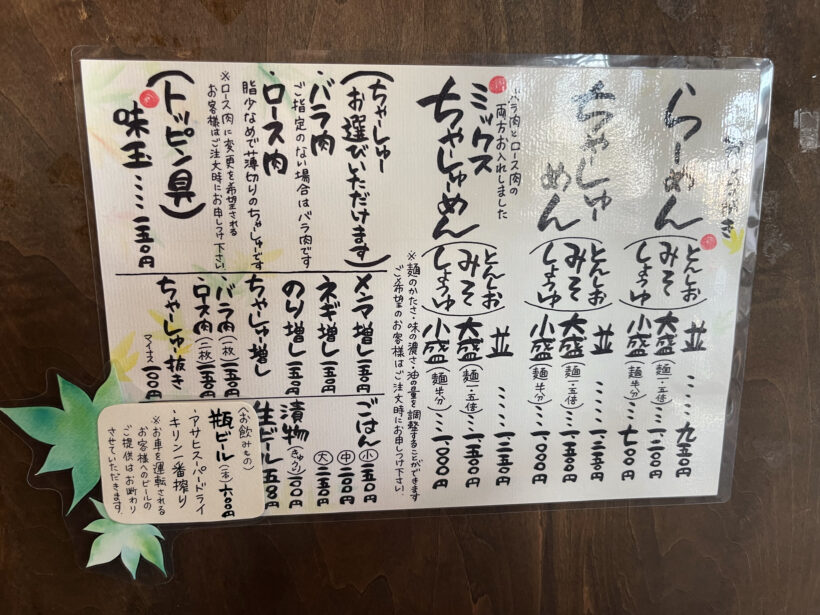 おしながき
らーめん
(とんしお
みそ
しょうゆ)
並……九五〇円
大盛(麺一・五倍)…一二〇〇円
小盛(麺半分)…七〇〇円
ちゃーしゅー
めん
(とんしお
みそ
しょうゆ)
並……一二五〇円
大盛(麺一・五倍)…一五〇〇円
小盛(麺半分)…一〇〇〇円
バラ肉とロース肉の
両方お入れしました
ミックス
ちゃーしゅーめん
(とんしお
みそ
しょうゆ)
並……一二五〇円
大盛(麺一・五倍)…一五〇〇円
小盛(麺半分)…一〇〇〇円
※麺のかたさ・味の濃さ・油の量を調整することができます
ご希望のお客様はご注文時にお申しつけ下さい
(ちゃーしゅー
お選びいただけます)
・バラ肉
ご指定のない場合はバラ肉です
・ロース肉
脂少なめで薄切りのちゃーしゅーです
※ロース肉に変更を希望される
お客様はご注文時にお申しつけ下さい
(トッピング具)
味玉……一五〇円
メンマ増し一五〇円
ネギ増し一五〇円
のり増し一五〇円
ちゃーしゅー増し
・バラ肉(一枚)一五〇円
・ロース肉(二枚)一五〇円
ちゃーしゅー抜き
マイナス一〇〇円
ごはん(小)一五〇円
(中)二〇〇円
(大)二五〇円
漬物(きゅうり)
生ビール
(お飲みもの)
瓶ビール(中)六〇〇円
・アサヒスーパードライ
・キリン一番搾り
※お車を運転される
お客様へのビールの
ご提供はお断わり
させていただきます。